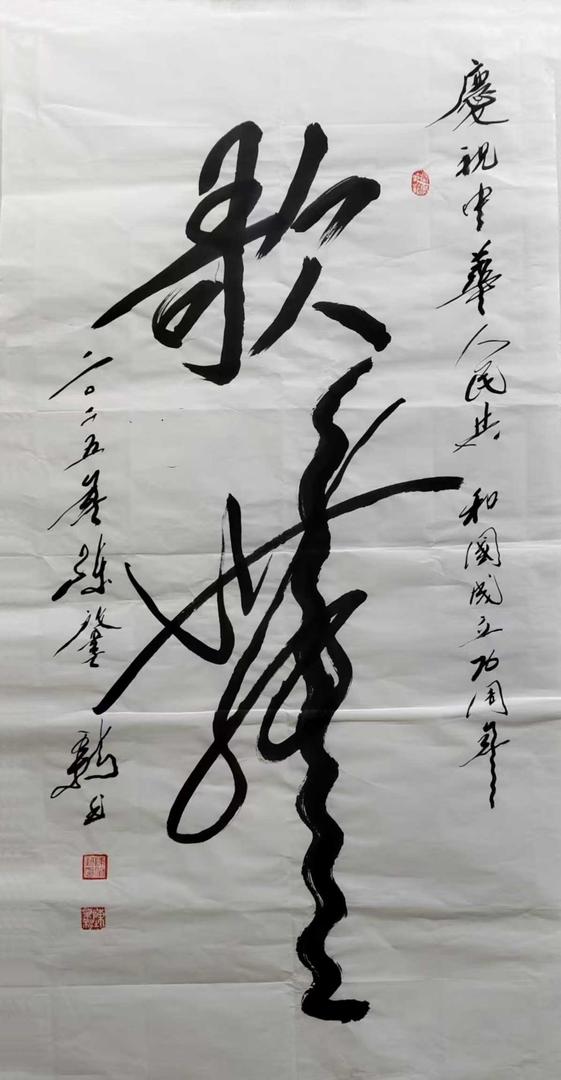 慶祝中華人民共和國成立76周年
歌舞
二〇二五年陳
书